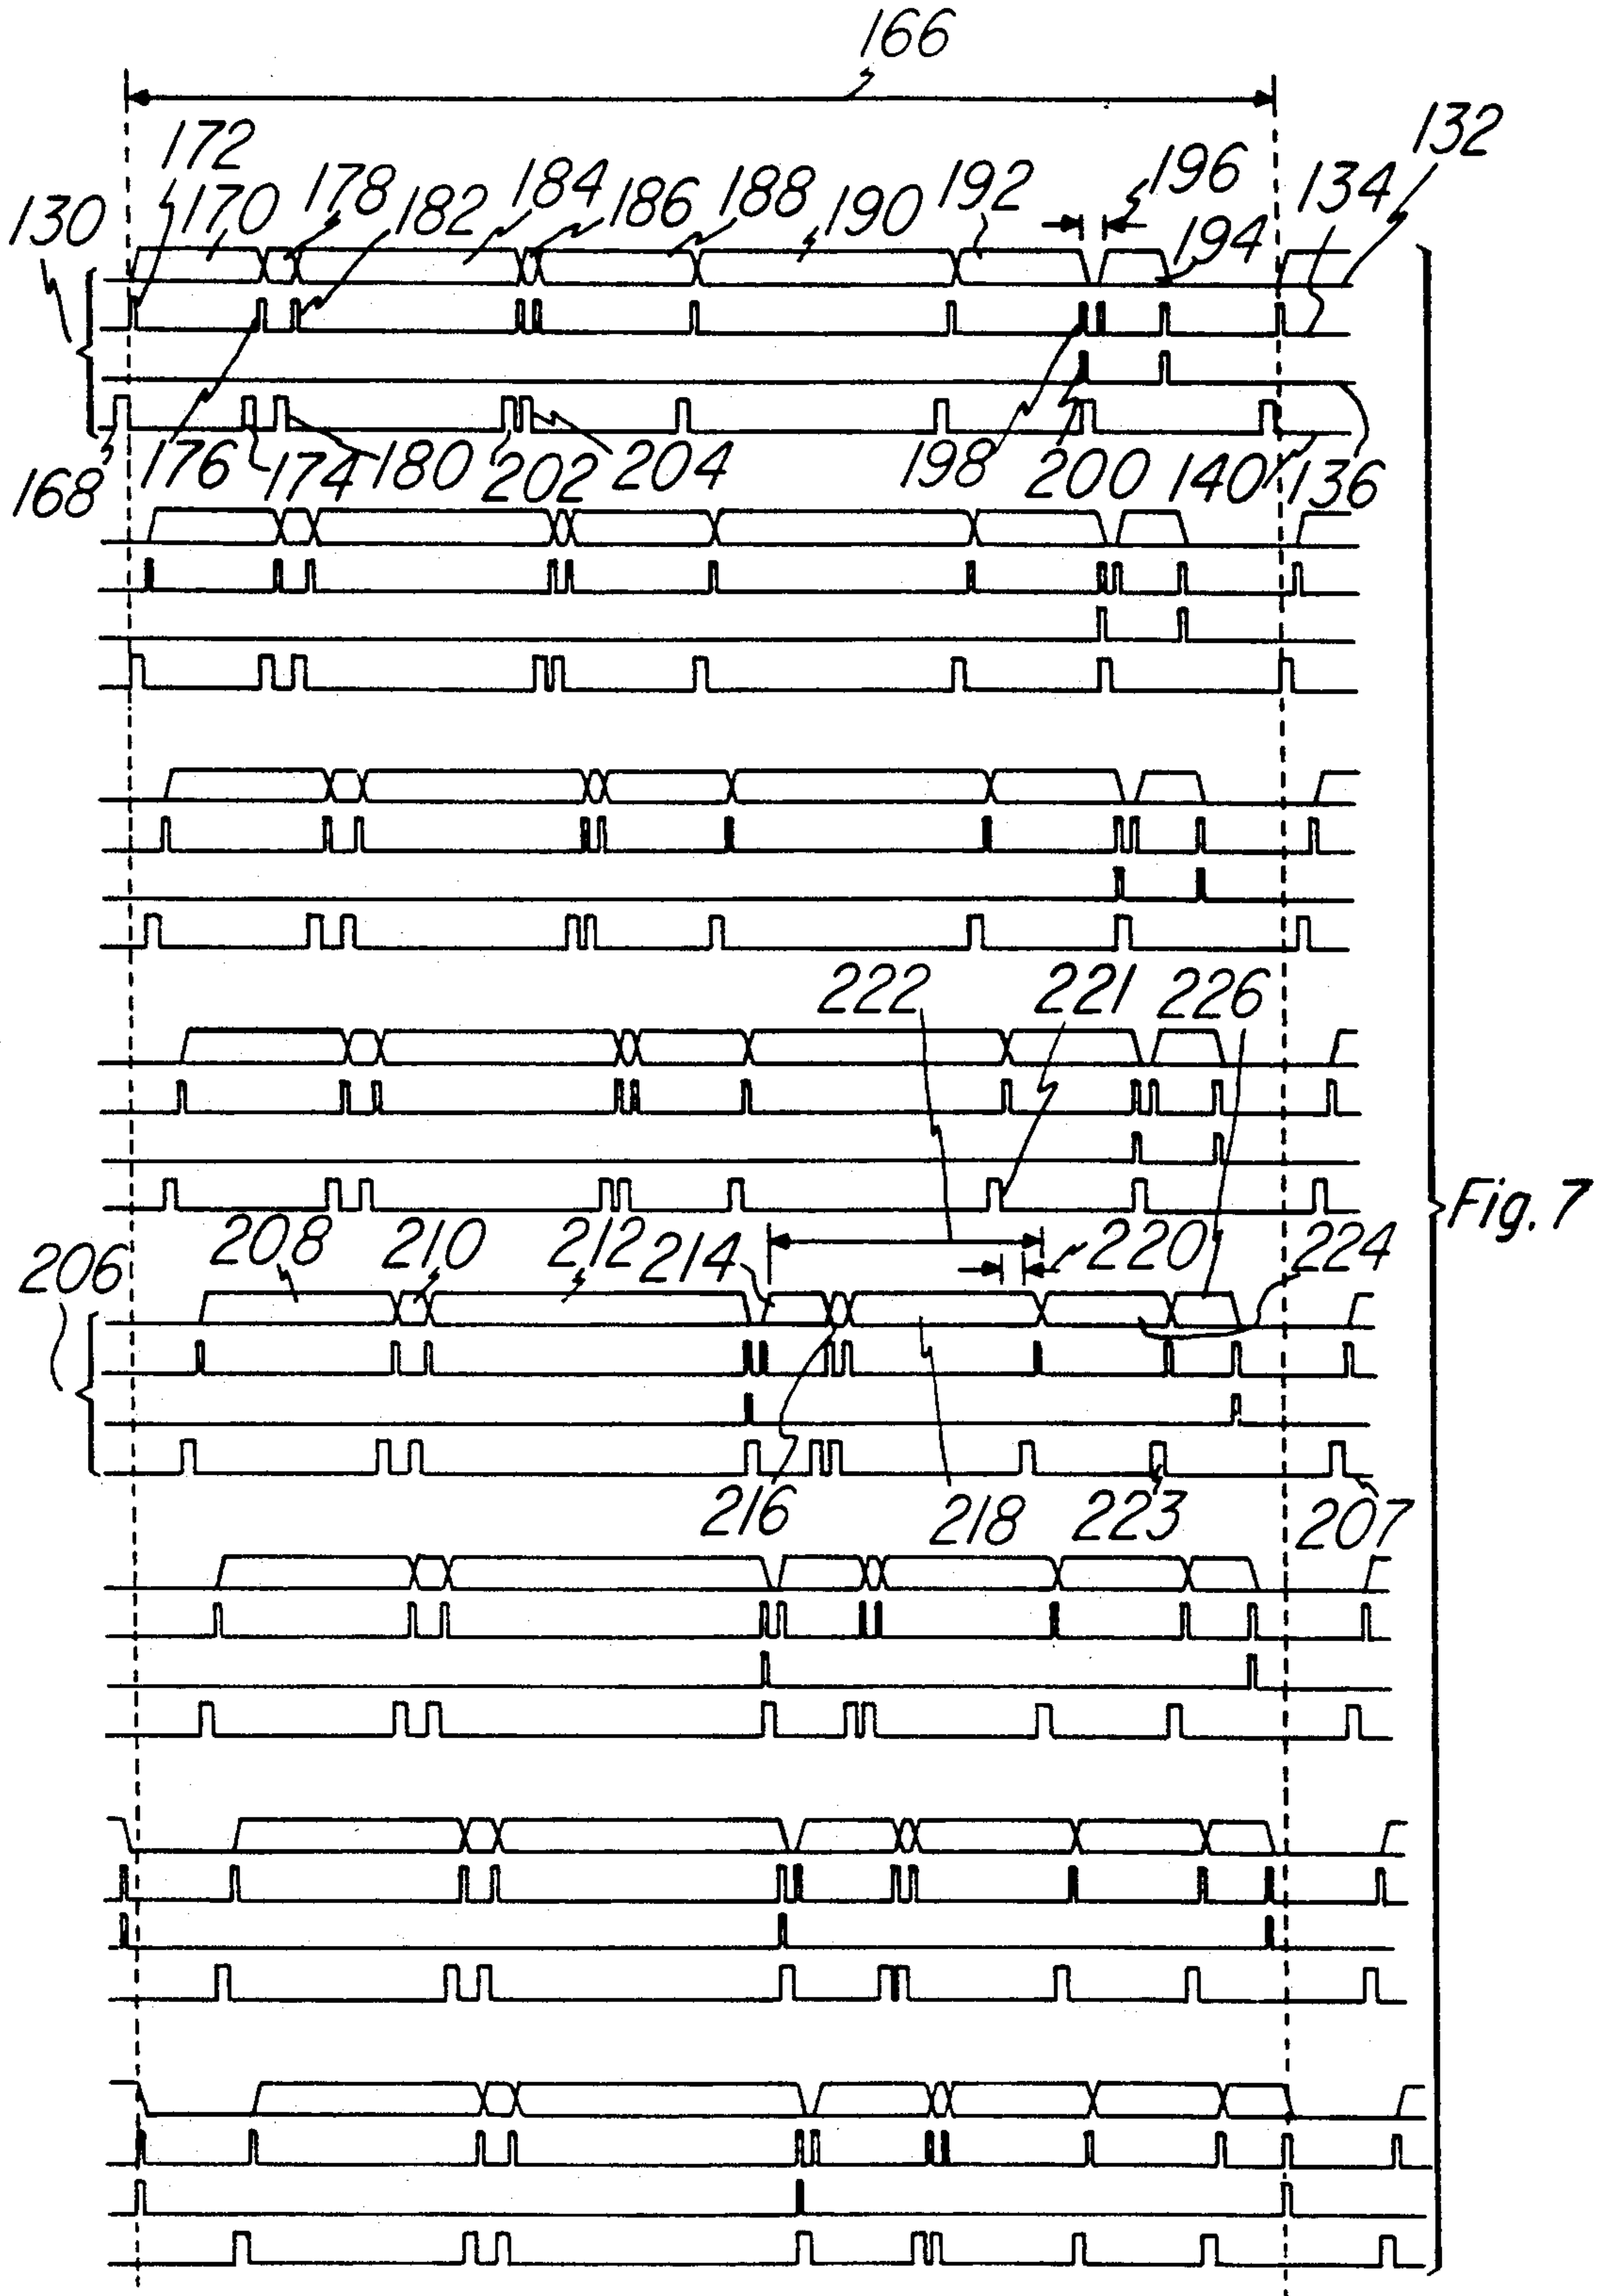 166
172 132
170 178 182 184 186 188 190 192 196 134
130 194
168 176 174 180 202 204 198 200 140 136
222 221 226
Fig. 7
206 208 210 212 214 220 224
216 218 223 207